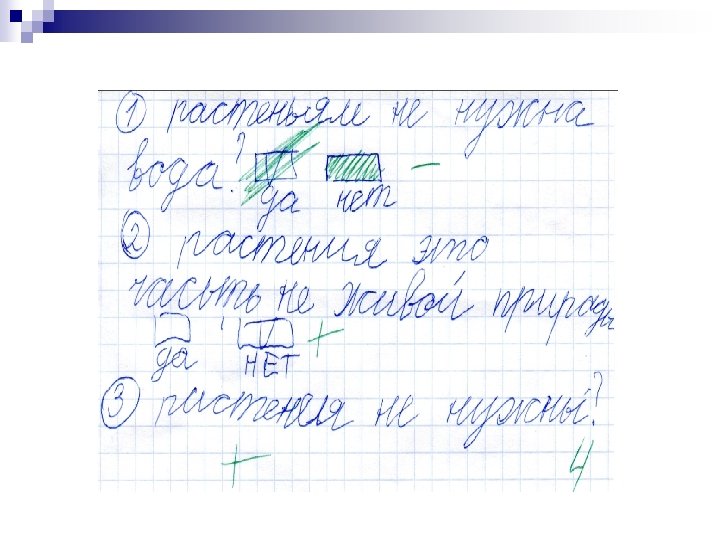 ① растеньям не нужна
вода?
да нет −
② растения это
часьть не живой природы
да НЕТ +
③ растения не нужны?
+ 4